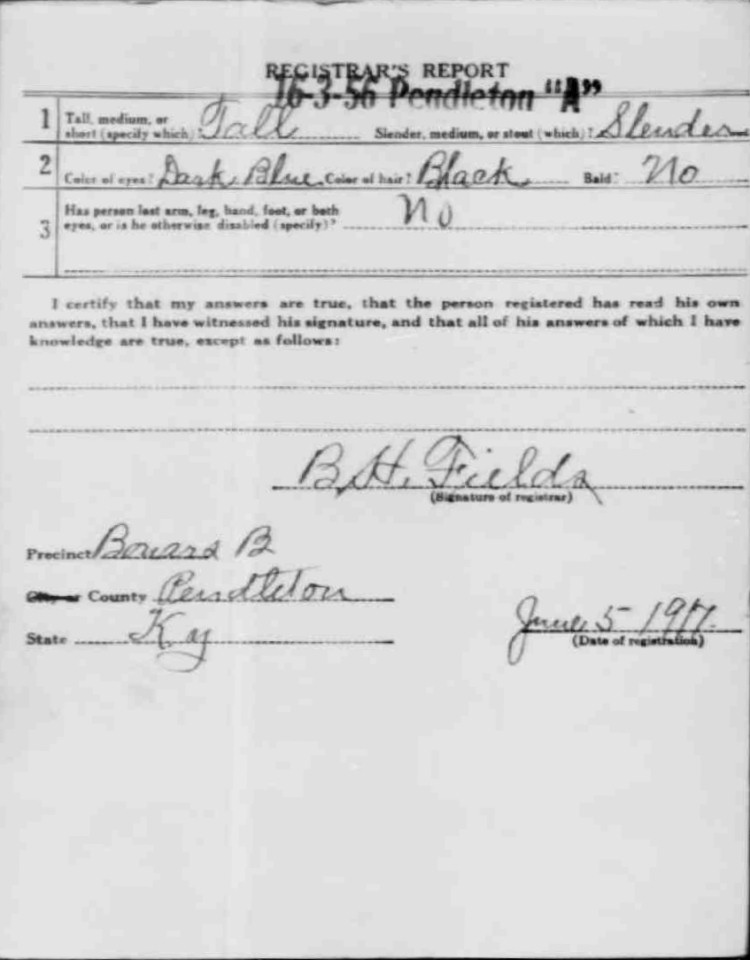 REGISTRAR'S REPORT
16-3-56 Pendleton "A"
1 Tall, medium, or short (specify which)? Tall Slender, medium, or stout (which)? Slender
2 Color of eyes? Dark Blue Color of hair? Black Bald? No
3 Has person lost arm, leg, hand, foot, or both
eyes, or is he otherwise disabled (specify)? No
I certify that my answers are true, that the person registered has read his own
answers, that I have witnessed his signature, and that all of his answers of which I have
knowledge are true, except as follows:
B. H. Fields
(Signature of registrar)
Precinct B
City or County Pendleton
State Ky
June 5 1917
(Date of registration)